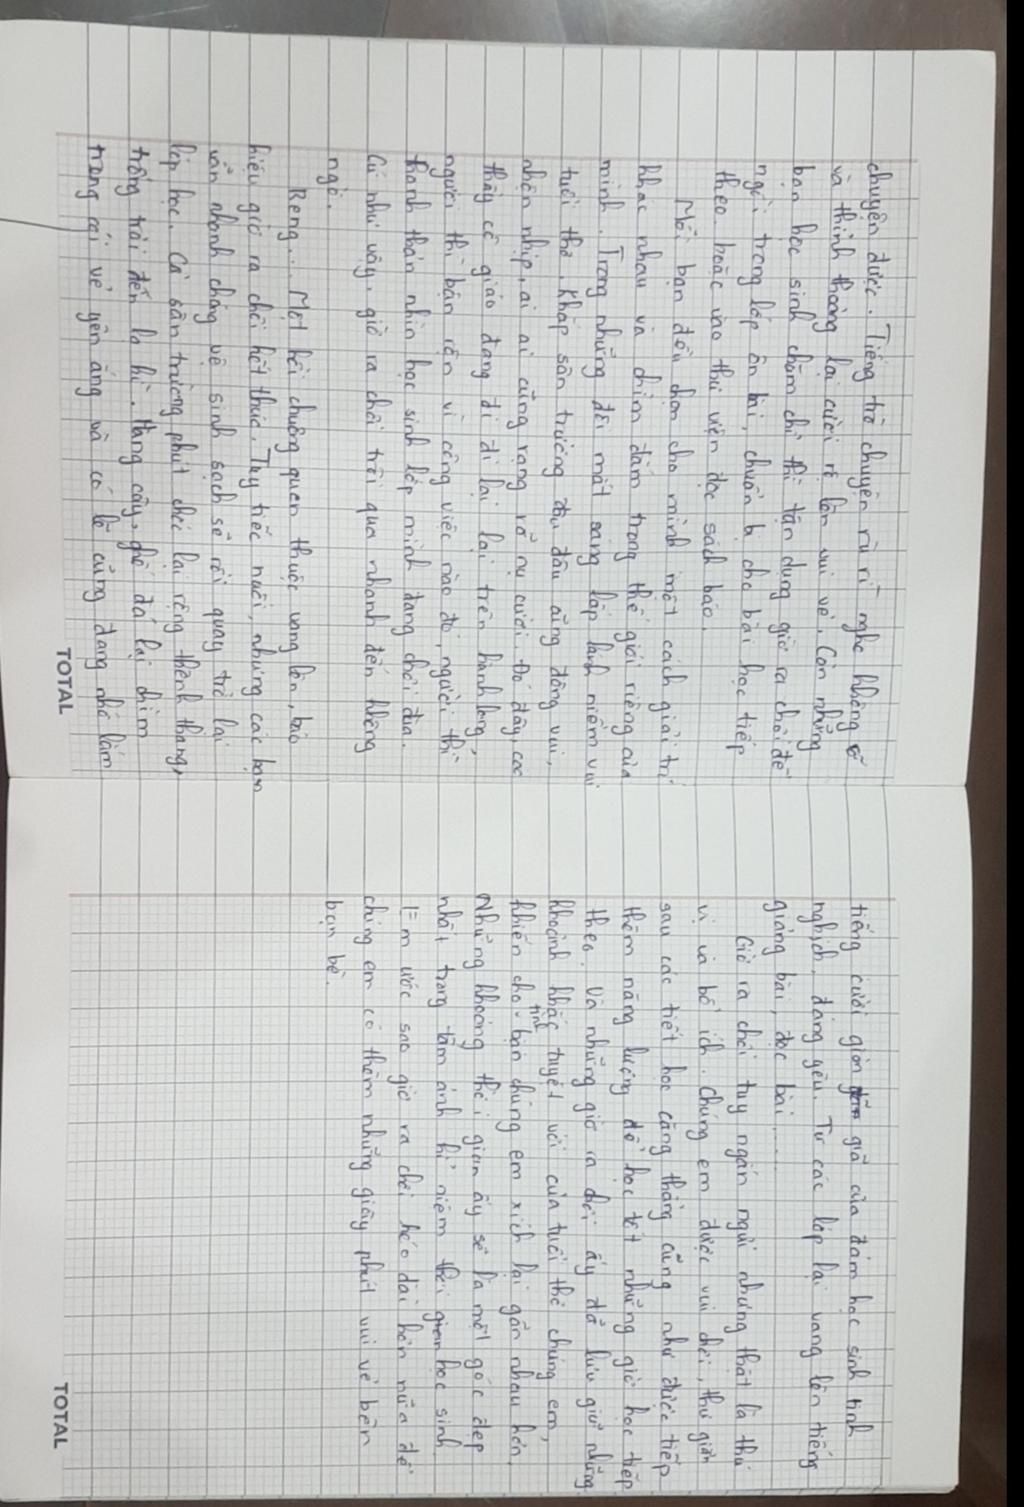 chuyện được. Tiếng trò chuyện rù rì nghe không rõ
và thỉnh thoảng lại cười rộ lên vui vẻ. Còn những
bạn học sinh chăm chỉ thì tận dụng giờ ra chơi để
ngồi trong lớp ôn bài, chuẩn bị cho bài học tiếp
theo hoặc vào thư viện đọc sách báo.
Mỗi bạn đều chọn cho mình một cách giải trí
khác nhau và chìm đắm trong thế giới riêng của
mình. Trong những đôi mắt sáng lấp lánh niềm vui
tuổi thơ. Khắp sân trường đâu đâu cũng đông vui,
nhộn nhịp, ai ai cũng rạng rỡ nụ cười. Đó đây, các
thầy cô giáo đang đi đi lại lại trên hành lang,
người thì bận rộn vì công việc nào đó, người thì
thanh thản nhìn học sinh lớp mình đang chơi đùa.
Cứ như vậy, giờ ra chơi trôi qua nhanh đến không
ngờ.
Reng.... Một hồi chuông quen thuộc vang lên, báo
hiệu giờ ra chơi kết thúc. Tuy tiếc nuối, nhưng các bạn
vẫn nhanh chóng vệ sinh sạch sẽ rồi quay trở lại
lớp học. Cả sân trường phút chốc lại rộng thênh thang,
trống trải đến lạ kì. Hàng cây, ghế đá lại chìm
trong cái vẻ yên ắng và có lẽ cũng đang nhớ lắm
TOTAL
tiếng cười giòn giã của đám học sinh tinh
nghịch, đáng yêu. Từ các lớp lại vang lên tiếng
giảng bài, đọc bài......
Giờ ra chơi tuy ngắn ngủi nhưng thật là thú
vị và bổ ích. Chúng em được vui chơi, thư giãn
sau các tiết học căng thẳng cũng như được tiếp
thêm năng lượng để học tốt những giờ học tiếp
theo. Và những giờ ra chơi ấy đã lưu giữ những
khoảnh khắc tuyệt vời của tuổi thơ chúng em,
khiến cho tình bạn chúng em xích lại gần nhau hơn.
Những khoảng thời gian ấy sẽ là một góc đẹp
nhất trong tấm ảnh kỉ niệm thời học sinh
Em ước sao giờ ra chơi kéo dài hơn nữa để
chúng em có thêm những giây phút vui vẻ bên
bạn bè.
TOTAL